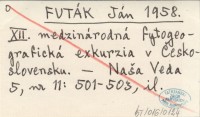 FUTÁK Ján 1958.
XII. medzinárodná fytogeo-
grafická exkurzia v Česko-
slovensku. — Naša Veda
5, nr 11: 501-503, il